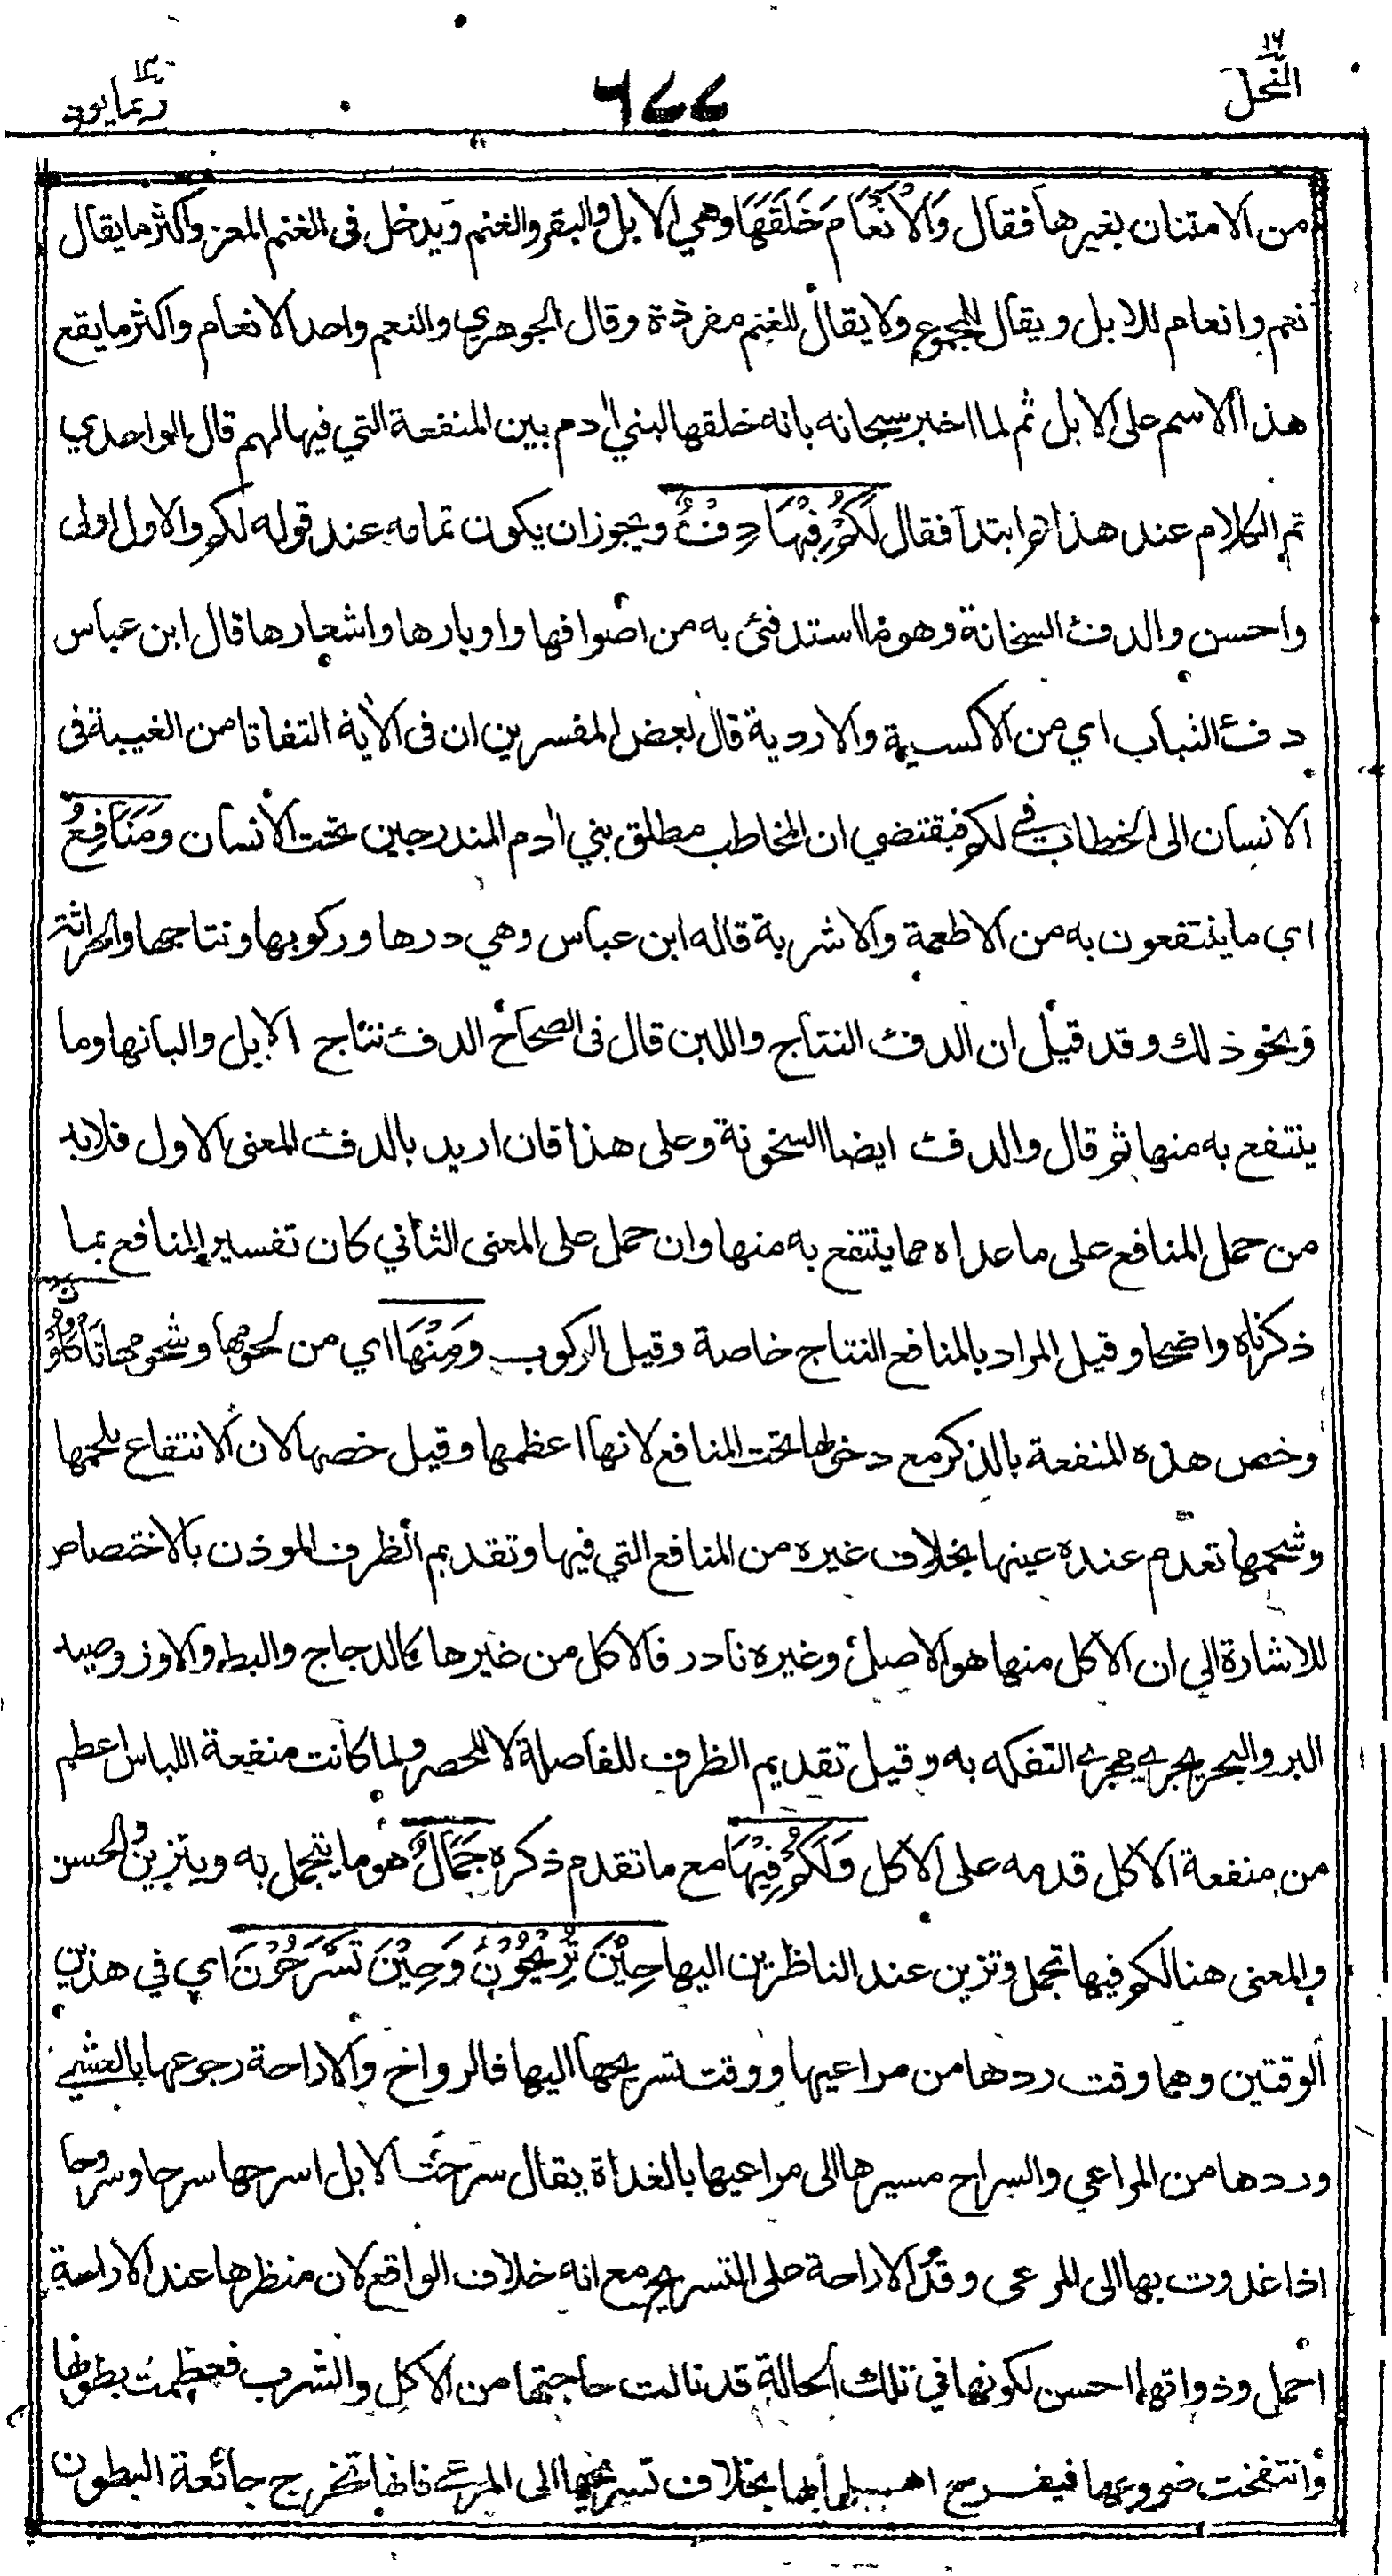 النحل ١٦
٦٧٧
ربما يود ١٤
من الامتنان بغيرها فقال وَالْاَنْعَامَ خَلَقَهَا وهي الابل والبقر والغنم ويدخل فى الغنم المعز واكثر ما يقال
نعم وانعام للابل ويقال للمجموع ولا يقال للغنم مفردة وقال الجوهري والنعم واحد الانعام واكثر ما يقع
هذا الاسم على الابل ثم لما اخبر سبحانه بانه خلقها لبني اٰدم بين المنفعة التي فيها لهم قال الواحدي
تم الكلام عند هذا ثم ابتدأ فقال لَكُمْ فِيْهَا دِفْءٌ ويجوز ان يكون تمامه عند قوله لكم والاول اولى
واحسن والدفء السخانة وهو ما استدفئ به من اصوافها واوبارها واشعارها قال ابن عباس
دفء الثياب اي من الاكسية والاردية قال بعض المفسرين ان فى الاٰية التفاتا من الغيبة فى
الانسان الى الخطاب في لكم فيقتضي ان المخاطب مطلق بني اٰدم المندرجين تحت الانسان وَمَنَافِعُ
اي ما ينتفعون به من الاطعمة والاشربة قاله ابن عباس وهي درها وركوبها ونتاجها والحراثة
ونحو ذلك وقد قيل ان الدفء النتاج واللبن قال فى الصحاح الدفء نتاج الابل والبانها وما
ينتفع به منها ثم قال والدفء ايضا السخونة وعلى هذا فان اريد بالدفء المعنى الاول فلا بد
من حمل المنافع على ما عداه مما ينتفع به منها وان حمل على المعنى الثاني كان تفسير المنافع بما
ذكرناه واضحا وقيل المراد بالمنافع النتاج خاصة وقيل الركوب وَمِنْهَا اي من لحومها وشحومها تَأْكُلُوْنَ
وخص هذه المنفعة بالذكر مع دخولها تحت المنافع لانها اعظمها وقيل خصها لان الانتفاع بلحمها
وشحمها تعدم عنده عينها بخلاف غيره من المنافع التي فيها وتقديم الظرف الموذن بالاختصاص
للاشارة الي ان الاكل منها هو الاصل وغيره نادر فالاكل من غيرها كالدجاج والبط والاوز وصيد
البر والبحر يجري مجرى التفكه به وقيل تقديم الظرف للفاصلة لا للحصر ولما كانت منفعة اللباس اعظم
من منفعة الاكل قدمه على الاكل وَلَكُمْ فِيْهَا مع ما تقدم ذكره جَمَالٌ هو ما يتجمل به ويتزين والحسن
والمعنى هنا لكم فيها تجمل وتزين عند الناظرين اليها حِيْنَ تُرِيْحُوْنَ وَحِيْنَ تَسْرَحُوْنَ اي في هذين
الوقتين وهما وقت ردها من مراعيها ووقت تسريحها اليها فالرواح والاراحة رجوعها بالعشي
وردها من المراعي والسراح مسيرها الى مراعيها بالغداة يقال سرحت الابل اسرحها سرحا وسروحا
اذا غدوت بها الى المرعى وقدم الاراحة على التسريح مع انه خلاف الواقع لان منظرها عند الاراحة
اجمل وذواتها احسن لكونها في تلك الحالة قد نالت حاجتها من الاكل والشرب فعظمت بطونها
وانتفخت ضروعها فيفرح اهلها بها بخلاف تسريحها الى المرعى فانها تخرج جائعة البطون